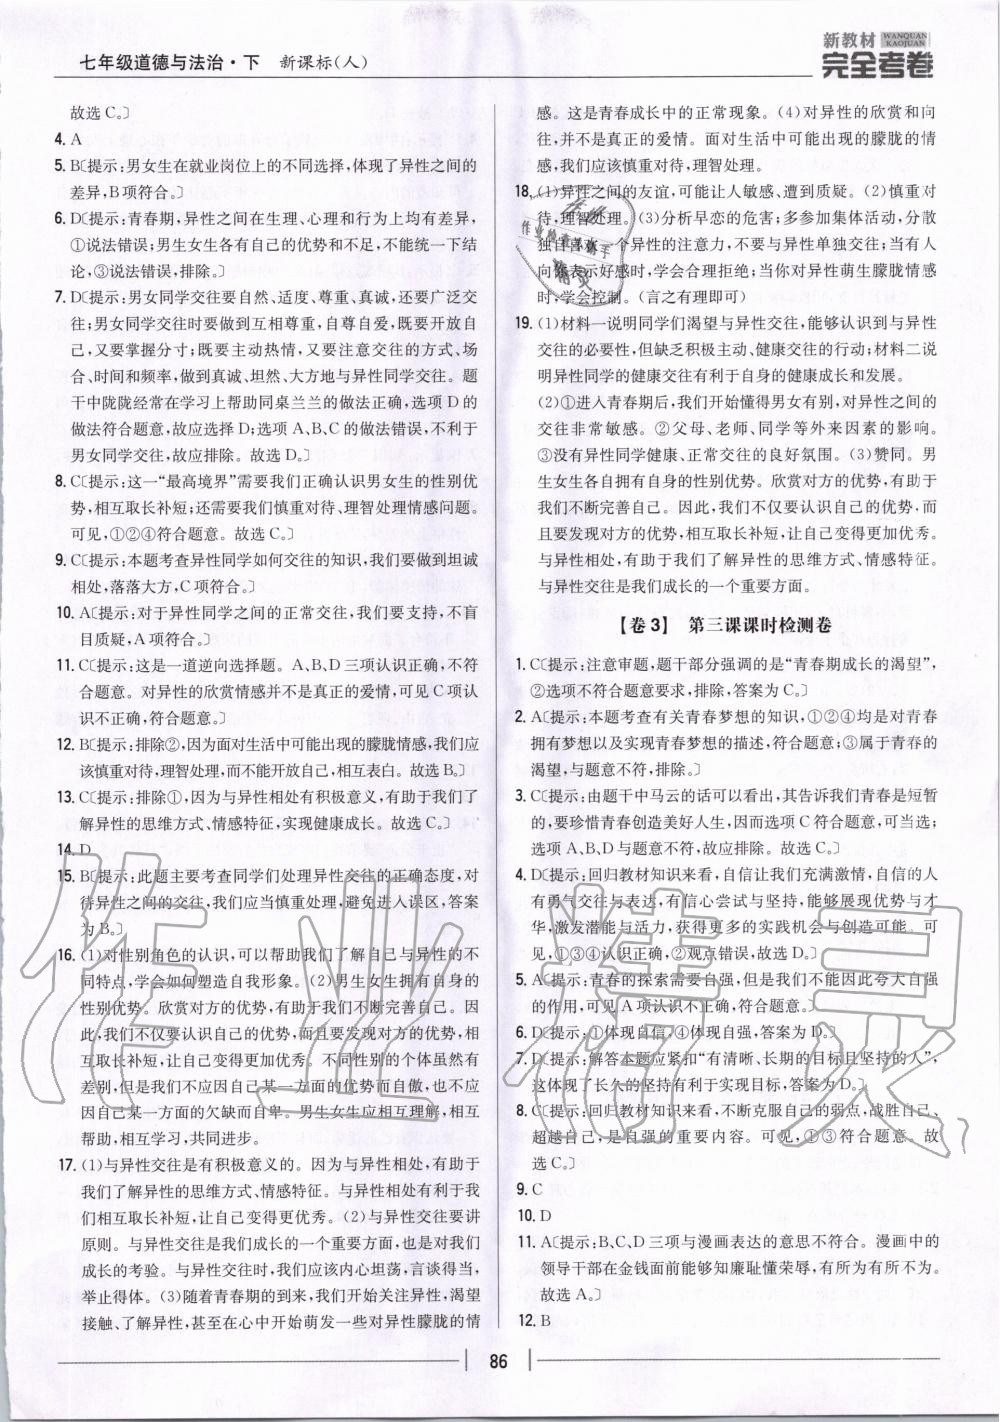 七年级道德与法治·下 新课标(人)
新教材 WANQUAN KAOJUAN
完全考卷
故选C。〕
4. A
5. B〔提示:男女生在就业岗位上的不同选择,体现了异性之间的
差异,B项符合。〕
6. D〔提示:青春期,异性之间在生理、心理和行为上均有差异,
①说法错误;男生女生各有自己的优势和不足,不能统一下结
论,③说法错误,排除。〕
7. D〔提示:男女同学交往要自然、适度、尊重、真诚,还要广泛交
往;男女同学交往时要做到互相尊重,自尊自爱,既要开放自
己,又要掌握分寸;既要主动热情,又要注意交往的方式、场
合、时间和频率,做到真诚、坦然、大方地与异性同学交往。题
干中陇陇经常在学习上帮助同桌兰兰的做法正确,选项D的
做法符合题意,故应选择D;选项A、B、C的做法错误,不利于
男女同学交往,故应排除。故选D。〕
8. C〔提示:这一“最高境界”需要我们正确认识男女生的性别优
势,相互取长补短;还需要我们慎重对待、理智处理情感问题。
可见,①②④符合题意。故选C。〕
9. C〔提示:本题考查异性同学如何交往的知识,我们要做到坦诚
相处,落落大方,C项符合。〕
10. A〔提示:对于异性同学之间的正常交往,我们要支持,不盲
目质疑,A项符合。〕
11. C〔提示:这是一道逆向选择题。A、B、D三项认识正确,不符
合题意。对异性的欣赏情感并不是真正的爱情,可见C项认
识不正确,符合题意。〕
12. B〔提示:排除②,因为面对生活中可能出现的朦胧情感,我们应
该慎重对待,理智处理,而不能开放自己,相互表白。故选B。〕
13. C〔提示:排除①,因为与异性相处有积极意义,有助于我们了
解异性的思维方式、情感特征,实现健康成长。故选C。〕
14. D
15. B〔提示:此题主要考查同学们处理异性交往的正确态度,对
待异性之间的交往,我们应当慎重处理,避免进入误区,答案
为B。〕
16. (1)对性别角色的认识,可以帮助我们了解自己与异性的不
同特点,学会如何塑造自我形象。(2)男生女生拥有自身的
性别优势。欣赏对方的优势,有助于我们不断完善自己。因
此,我们不仅要认识自己的优势,而且要发现对方的优势,相
互取长补短,让自己变得更加优秀。不同性别的个体虽然有
差别,但是我们不应因自己某一方面的优势而自傲,也不应
因自己某一方面的欠缺而自卑。男生女生应相互理解,相互
帮助,相互学习,共同进步。
17. (1)与异性交往是有积极意义的。因为与异性相处,有助于
我们了解异性的思维方式、情感特征。与异性相处,有利于我
们相互取长补短,让自己变得更优秀。(2)与异性交往要讲
原则。与异性交往是我们成长的一个重要方面,也是对我们
成长的考验。与异性交往时,我们应该内心坦荡,言谈得当,
举止得体。(3)随着青春期的到来,我们开始关注异性,渴望
接触、了解异性,甚至在心中开始萌发一些对异性朦胧的情
感。这是青春成长中的正常现象。(4)对异性的欣赏和向
往,并不是真正的爱情。面对生活中可能出现的朦胧的情
感,我们应该慎重对待,理智处理。
18. (1)异性之间的友谊,可能让人敏感、遭到质疑。(2)慎重对
待,理智处理。(3)分析早恋的危害;多参加集体活动,分散
独自喜欢一个异性的注意力,不要与异性单独交往;当有人
向你表示好感时,学会合理拒绝;当你对异性萌生朦胧情感
时,学会控制。(言之有理即可)
19. (1)材料一说明同学们渴望与异性交往,能够认识到与异性
交往的必要性,但缺乏积极主动、健康交往的行动;材料二说
明异性同学的健康交往有利于自身的健康成长和发展。
(2)①进入青春期后,我们开始懂得男女有别,对异性之间的
交往非常敏感。②父母、老师、同学等外来因素的影响。
③没有异性同学健康、正常交往的良好氛围。(3)赞同。男
生女生各自拥有自身的性别优势。欣赏对方的优势,有助于
我们不断完善自己。因此,我们不仅要认识自己的优势,而
且要发现对方的优势,相互取长补短,让自己变得更加优秀。
与异性相处,有助于我们了解异性的思维方式、情感特征。
与异性交往是我们成长的一个重要方面。
【卷3】 第三课课时检测卷
1. C〔提示:注意审题,题干部分强调的是“青春期成长的渴望”,
②选项不符合题意要求,排除,答案为C。〕
2. A〔提示:本题考查有关青春梦想的知识,①②④均是对青春
拥有梦想以及实现青春梦想的描述,符合题意;③属于青春的
渴望,与题意不符,排除。〕
3. C〔提示:由题干中马云的话可以看出,其告诉我们青春是短暂
的,要珍惜青春创造美好人生,因而选项C符合题意,可当选;
选项A、B、D与题意不符,故应排除。故选C。〕
4. D〔提示:回归教材知识来看,自信让我们充满激情,自信的人
有勇气交往与表达,有信心尝试与坚持,能够展现优势与才
华,激发潜能与活力,获得更多的实践机会与创造可能。可
见,①③④认识正确,②观点错误,故选D。〕
5. A〔提示:青春的探索需要自强,但是我们不能因此夸大自强
的作用,可见A项认识不正确,符合题意。〕
6. D〔提示:①体现自信,④体现自强,答案为D。〕
7. D〔提示:解答本题应紧扣“有清晰、长期的目标且坚持的人”,
这体现了长久的坚持有利于实现目标,答案为D。〕
8. C〔提示:回归教材知识来看,不断克服自己的弱点,战胜自己、
超越自己,是自强的重要内容。可见,①③符合题意。故
选C。〕
9. C
10. D
11. A〔提示:B、C、D三项与漫画表达的意思不符合。漫画中的
领导干部在金钱面前能够知廉耻懂荣辱,有所为有所不为。
故选A。〕
12. B
86